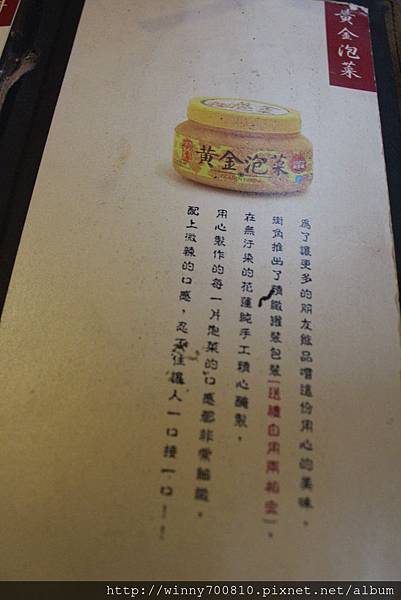 黃金泡菜
黃金泡菜
為了讓更多的朋友能品嚐這份用心的美味，
街角推出了精緻罐裝包裝(送禮自用兩相宜)。
在無汙染的花蓮純手工精心醃製，
用心製作的每一片泡菜的口感都非常細緻，
配上微辣的口感，忍不住讓人一口接一口……
http://winny700810.pixnet.net/album